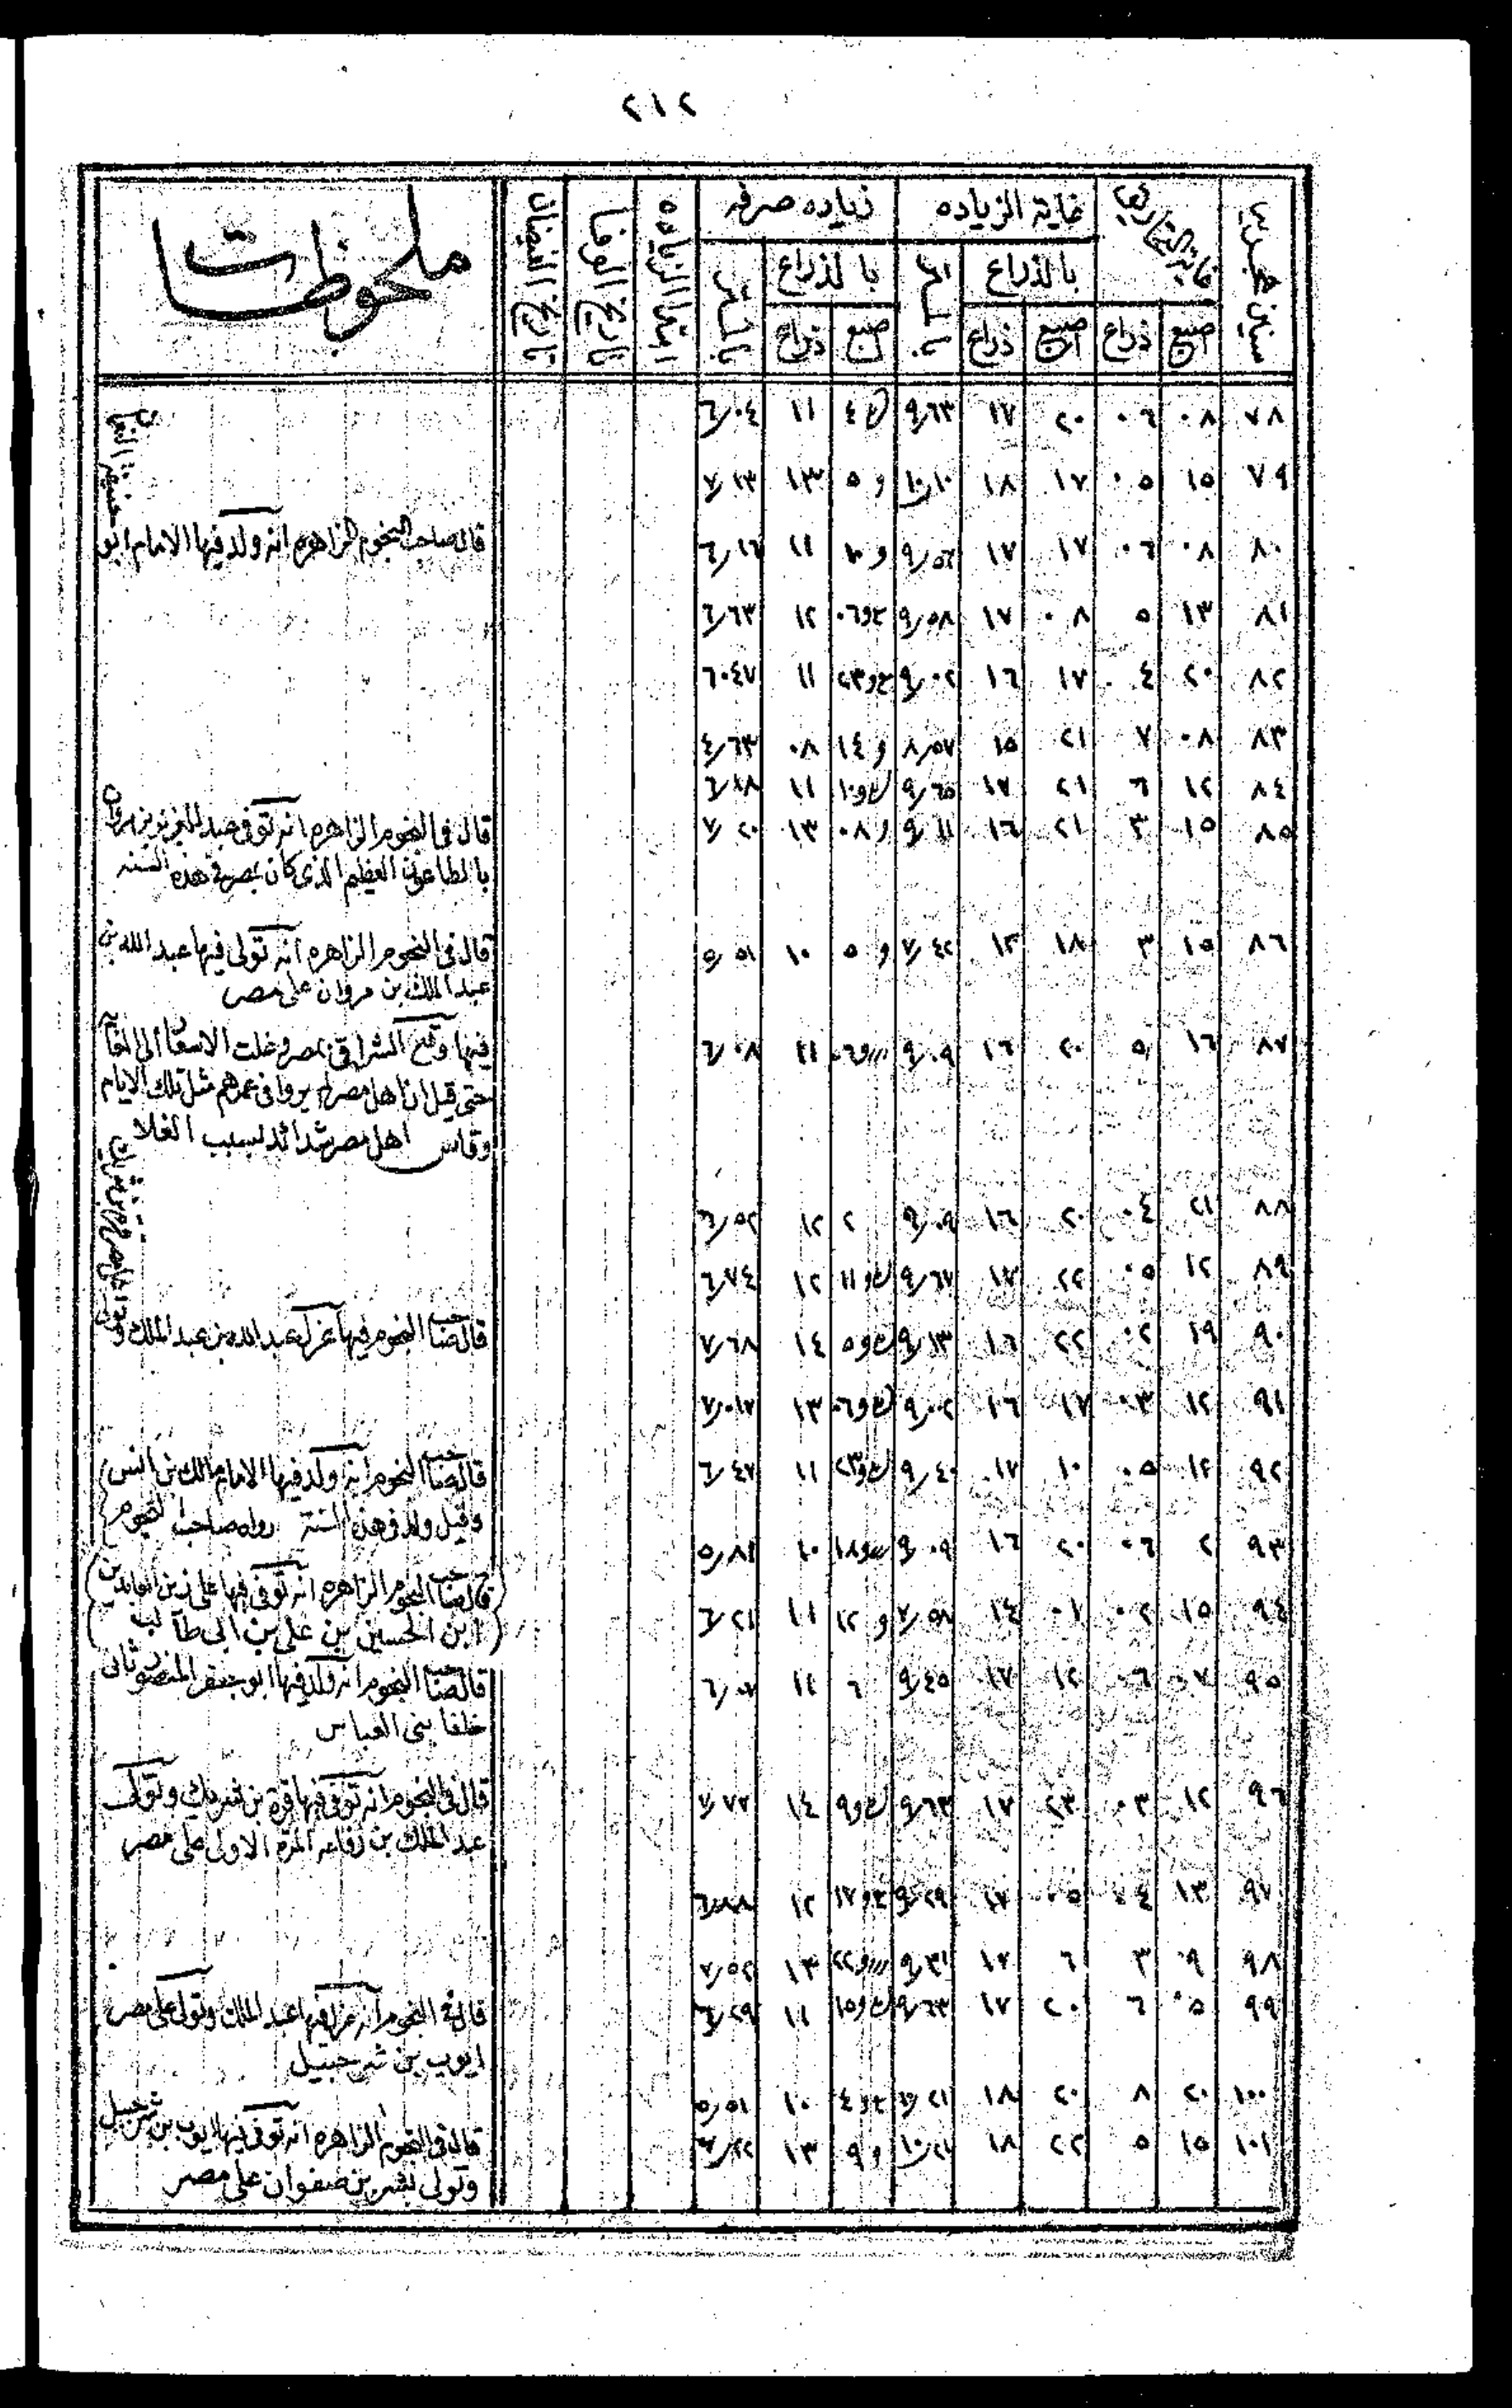 ٢١٢
سنين هجريه | غاية التحاريق | غاية الزياده | زياده صرفه | ابتدا الزياده | تاريخ الوفا | تاريخ الفيضان | ملحوظات
بالذراع | بالمتر | بالذراع | بالمتر
اصبع | ذراع | اصبع | ذراع | اصبع | ذراع
٧٨ | ٠٨ | ٠٦ | ٢٠ | ١٧ | ٩٫٦٣ | ٤ | ١١ | ٦٫٠٤
٧٩ | ١٥ | ٠٥ | ١٧ | ١٨ | ١٠٫١٠ | و ٥ | ١٣ | ٧٫١٣
٨٠ | ٠٨ | ٠٦ | ١٧ | ١٧ | ٩٫٥٦ | و | ١١ | ٦٫١٦ | قال صاحب النجوم الزاهره انه ولد فيها الامام ابو حنيفة النعمان
٨١ | ١٣ | ٥ | ٠٨ | ١٧ | ٩٫٥٨ | ٠٦ | ١٢ | ٦٫٦٣
٨٢ | ٢٠ | ٤ | ١٧ | ١٦ | ٩٫٠٢ | و٢٣ | ١١ | ٦٠٤٧
٨٣ | ٠٨ | ٧ | ٢١ | ١٥ | ٨٫٥٧ | و ١٤ | ٠٨ | ٤٫٦٣
٨٤ | ١٢ | ٦ | ٢١ | ١٧ | ٩٫٦٥ | و١٠ | ١١ | ٦٫١٨
٨٥ | ١٥ | ٣ | ٢١ | ١٦ | ٩٫١١ | و ٠٨ | ١٣ | ٧٫٢٠ | قال فى النجوم الزاهره انه توفى عبد العزيز بن مروان
بالطاعون العظيم الذى كان بمصر فى هذه السنه
٨٦ | ١٥ | ٣ | ١٨ | ١٣ | ٧٫٤٢ | و ٥ | ١٠ | ٥٫٥١ | قال فى النجوم الزاهره انه تولى فيها عبد الله بن
عبد الملك بن مروان على مصر
٨٧ | ١٦ | ٥ | ٢٠ | ١٦ | ٩٫٠٩ | و٠٦ | ١١ | ٦٫٠٨ | فيها وقع الشراقى بمصر وغلت الاسعار الى الغايه
حتى قيل ان اهل مصر لم يروا فى عمرهم مثل تلك الايام
وقاس اهل مصر شدائد بسبب الغلا
٨٨ | ٢١ | ٠٤ | ٢٠ | ١٦ | ٩٫٠٩ | ٢ | ١٢ | ٦٫٥٢
٨٩ | ١٢ | ٠٥ | ٢٢ | ١٧ | ٩٫٦٧ | و١١ | ١٢ | ٦٫٧٤
٩٠ | ١٩ | ٠٢ | ٢٢ | ١٦ | ٩٫١٣ | و٥ | ١٤ | ٧٫٦٨ | قال صاحب النجوم فيها عزل عبد الله بن عبد الملك وتولى على مصر قرة بن شريك
٩١ | ١٢ | ٠٣ | ١٧ | ١٦ | ٩٫٠٢ | و٠٦ | ١٣ | ٧٫٠١٧
٩٢ | ١٢ | ٠٥ | ١٠ | ١٧ | ٩٫٤٠ | و٢٣ | ١١ | ٦٫٤٧ | قال صاحب النجوم انه ولد فيها الامام مالك بن انس
وقيل ولد فى هذه السنة رواه صاحب النجوم
٩٣ | ٢ | ٠٦ | ٢٠ | ١٦ | ٩٫٠٩ | و١٨ | ١٠ | ٥٫٨١
٩٤ | ١٥ | ٠٢ | ٠١ | ١٤ | ٧٫٥٨ | و ١٢ | ١١ | ٦٫٢١ | قال صاحب النجوم الزاهره انه توفى فيها على زين العابدين
ابن الحسين بن على بن ابى طالب
٩٥ | ٠٧ | ٠٦ | ١٢ | ١٧ | ٩٫٤٥ | ٦ | ١١ | قال صاحب النجوم انه ولد فيها ابو جعفر المنصور ثانى
خلفا بنى العباس
٩٦ | ١٢ | ٠٣ | ٢٣ | ١٧ | ٩٫٦٣ | و٩ | ١٤ | ٧٫٧٢ | قال فى النجوم انه توفى فيها قرة بن شريك وتولى
عبد الملك بن رفاعه المرة الاولى على مصر
٩٧ | ١٣ | ٠٤ | ٠٥ | ١٧ | ٩٫٢٩ | و١٧ | ١٢ | ٦٫٨٨
٩٨ | ٩ | ٣ | ٦ | ١٧ | ٩٫٣١ | و٢٢ | ١٣ | ٧٫٥٢
٩٩ | ٠٥ | ٦ | ٢٠ | ١٧ | ٩٫٦٣ | و١٥ | ١١ | ٦٫٢٩ | قال فى النجوم انه عزل فيها عبد الملك وتولى على مصر
ايوب بن شرحبيل
١٠٠ | ٢٠ | ٨ | ٢٠ | ١٨ | و٤ | ١٠ | ٥٫٥١
١٠١ | ١٥ | ٥ | ٢٢ | ١٨ | ١٠٫٢١ | و ٩ | ١٣ | قال فى النجوم الزاهره انه توفى فيها ايوب بن شرحبيل
وتولى بشر بن صفوان على مصر